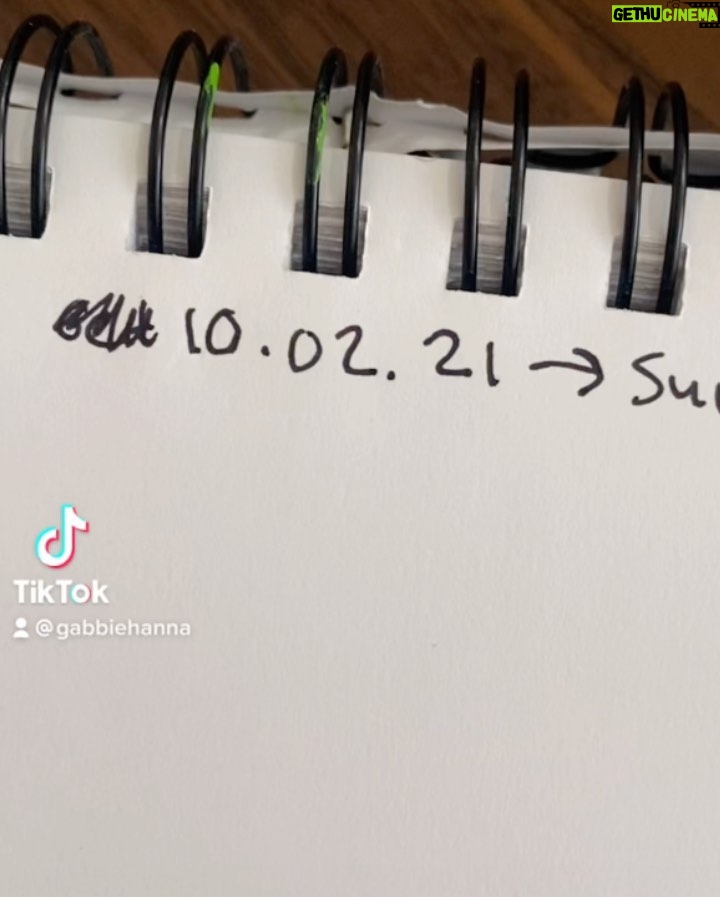 GETHUCINEMA
10.02.21 →
TikTok
@gabbiehanna